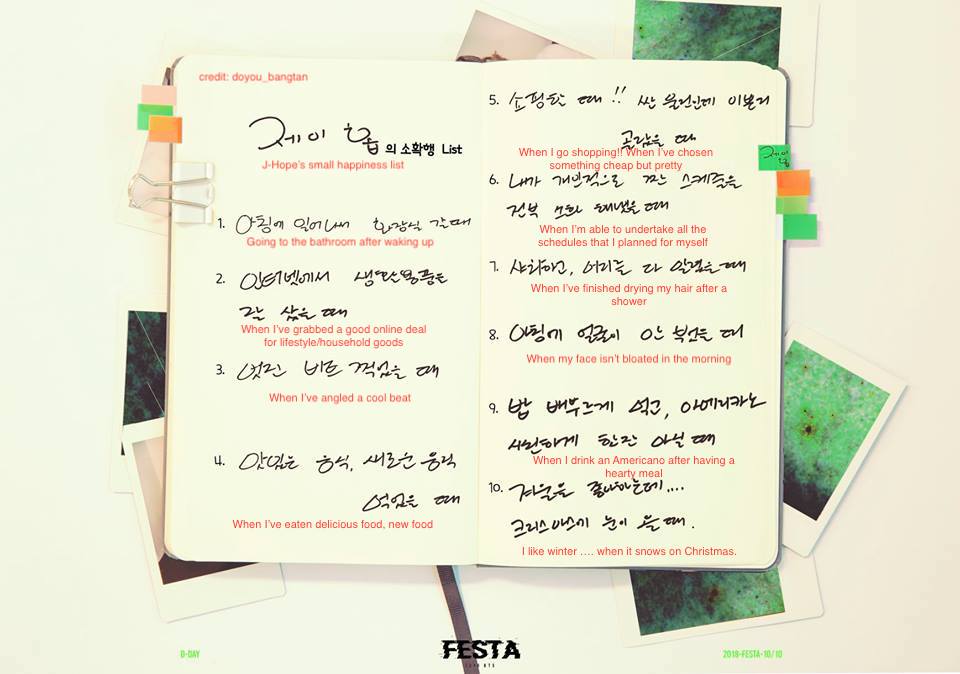 credit: doyou_bangtan
제이홉 의 소확행 List
J-Hope's small happiness list
1. 아침에 일어나서 화장실 갈 때
Going to the bathroom after waking up
2. 인터넷에서 생활용품을
잘 샀을 때
When I've grabbed a good online deal
for lifestyle/household goods
3. 멋진 비트 찍었을 때
When I've angled a cool beat
4. 맛있는 음식, 새로운 음식
먹었을 때
When I've eaten delicious food, new food
5. 쇼핑할 때!! 싼 물건인데 이쁜거
골랐을 때
When I go shopping!! When I've chosen
something cheap but pretty
6. 내가 개인적으로 짠 스케줄을
전부 소화 해냈을 때
When I'm able to undertake all the
schedules that I planned for myself
7. 샤워하고, 머리를 다 말렸을 때
When I've finished drying my hair after a
shower
8. 아침에 얼굴이 안 부었을 때
When my face isn't bloated in the morning
9. 밥 배부르게 먹고, 아메리카노
시원하게 한잔 마실 때
When I drink an Americano after having a
hearty meal
10. 겨울을 좋아하는데....
크리스마스에 눈이 올 때.
I like winter .... when it snows on Christmas.
제이홉
D-DAY
FESTA
2018 BTS
2018-FESTA-10/10